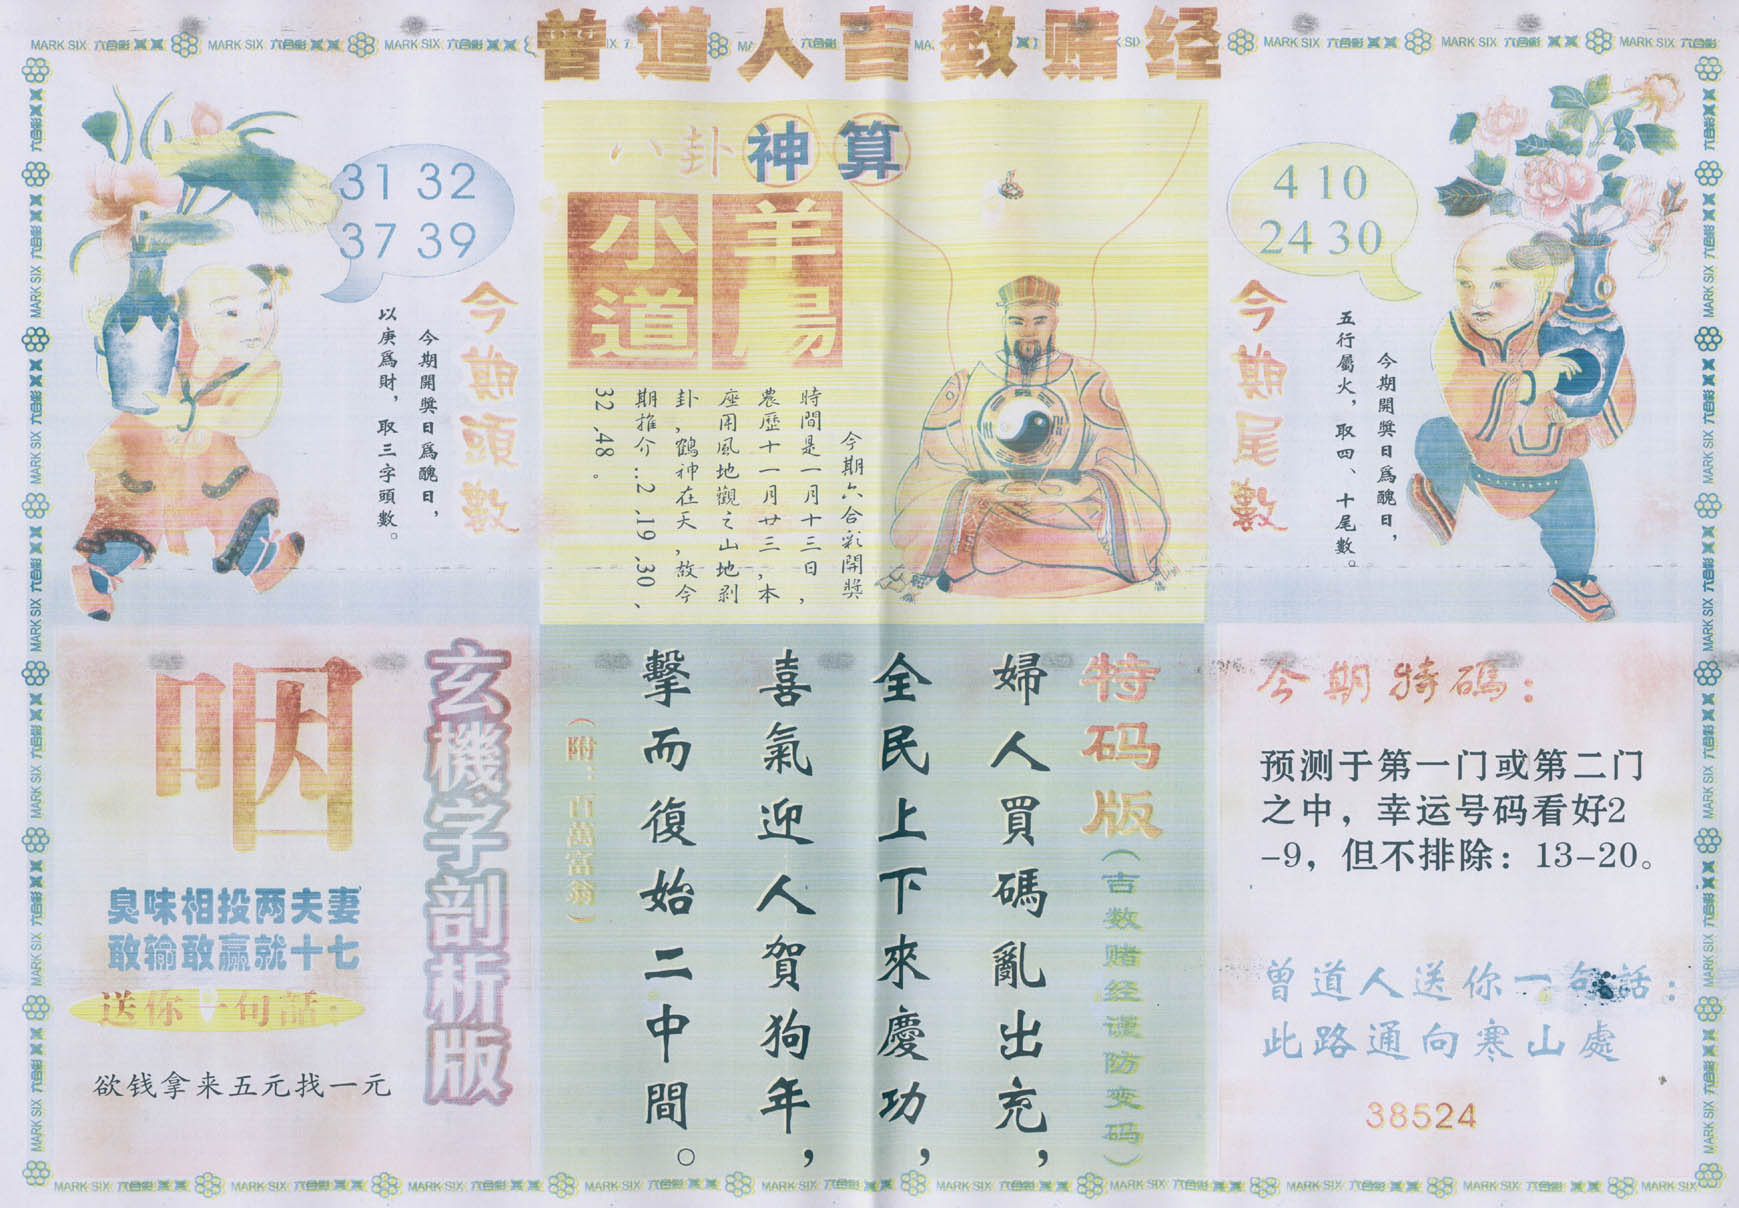 曾道人吉数赌经
MARK SIX 六合彩
31 32
37 39
今期頭數
今期開獎日爲醜日，
以庚爲財，取三字頭數。
八卦神算
羊陽
小道
今期六合彩開獎
時間是一月十三日，
農歷十一月廿三，本
座用風地觀之山地剥
卦，鶴神在天，故今
期推介：.2、19、30、
32、48。
4 10
24 30
今期尾數
今期開獎日爲醜日，
五行屬火，取四、十尾數。
玄機字剖析版
咽
臭味相投两夫妻
敢输敢赢就十七
送你一句話：
欲钱拿来五元找一元
特码版（吉数赌经谨防变码）
婦人買碼亂出充，
全民上下來慶功，
喜氣迎人賀狗年，
擊而復始二中間。
（附：百萬富翁）
今期特碼：
预测于第一门或第二门
之中，幸运号码看好2
-9，但不排除：13-20。
曾道人送你一句話：
此路通向寒山處
38524